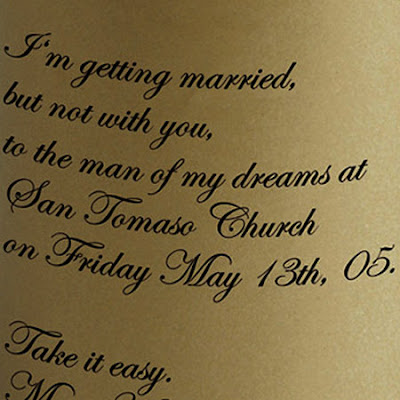 I'm getting married,
but not with you,
to the man of my dreams at
San Tomaso Church
on Friday May 13th, 05.
Take it easy.